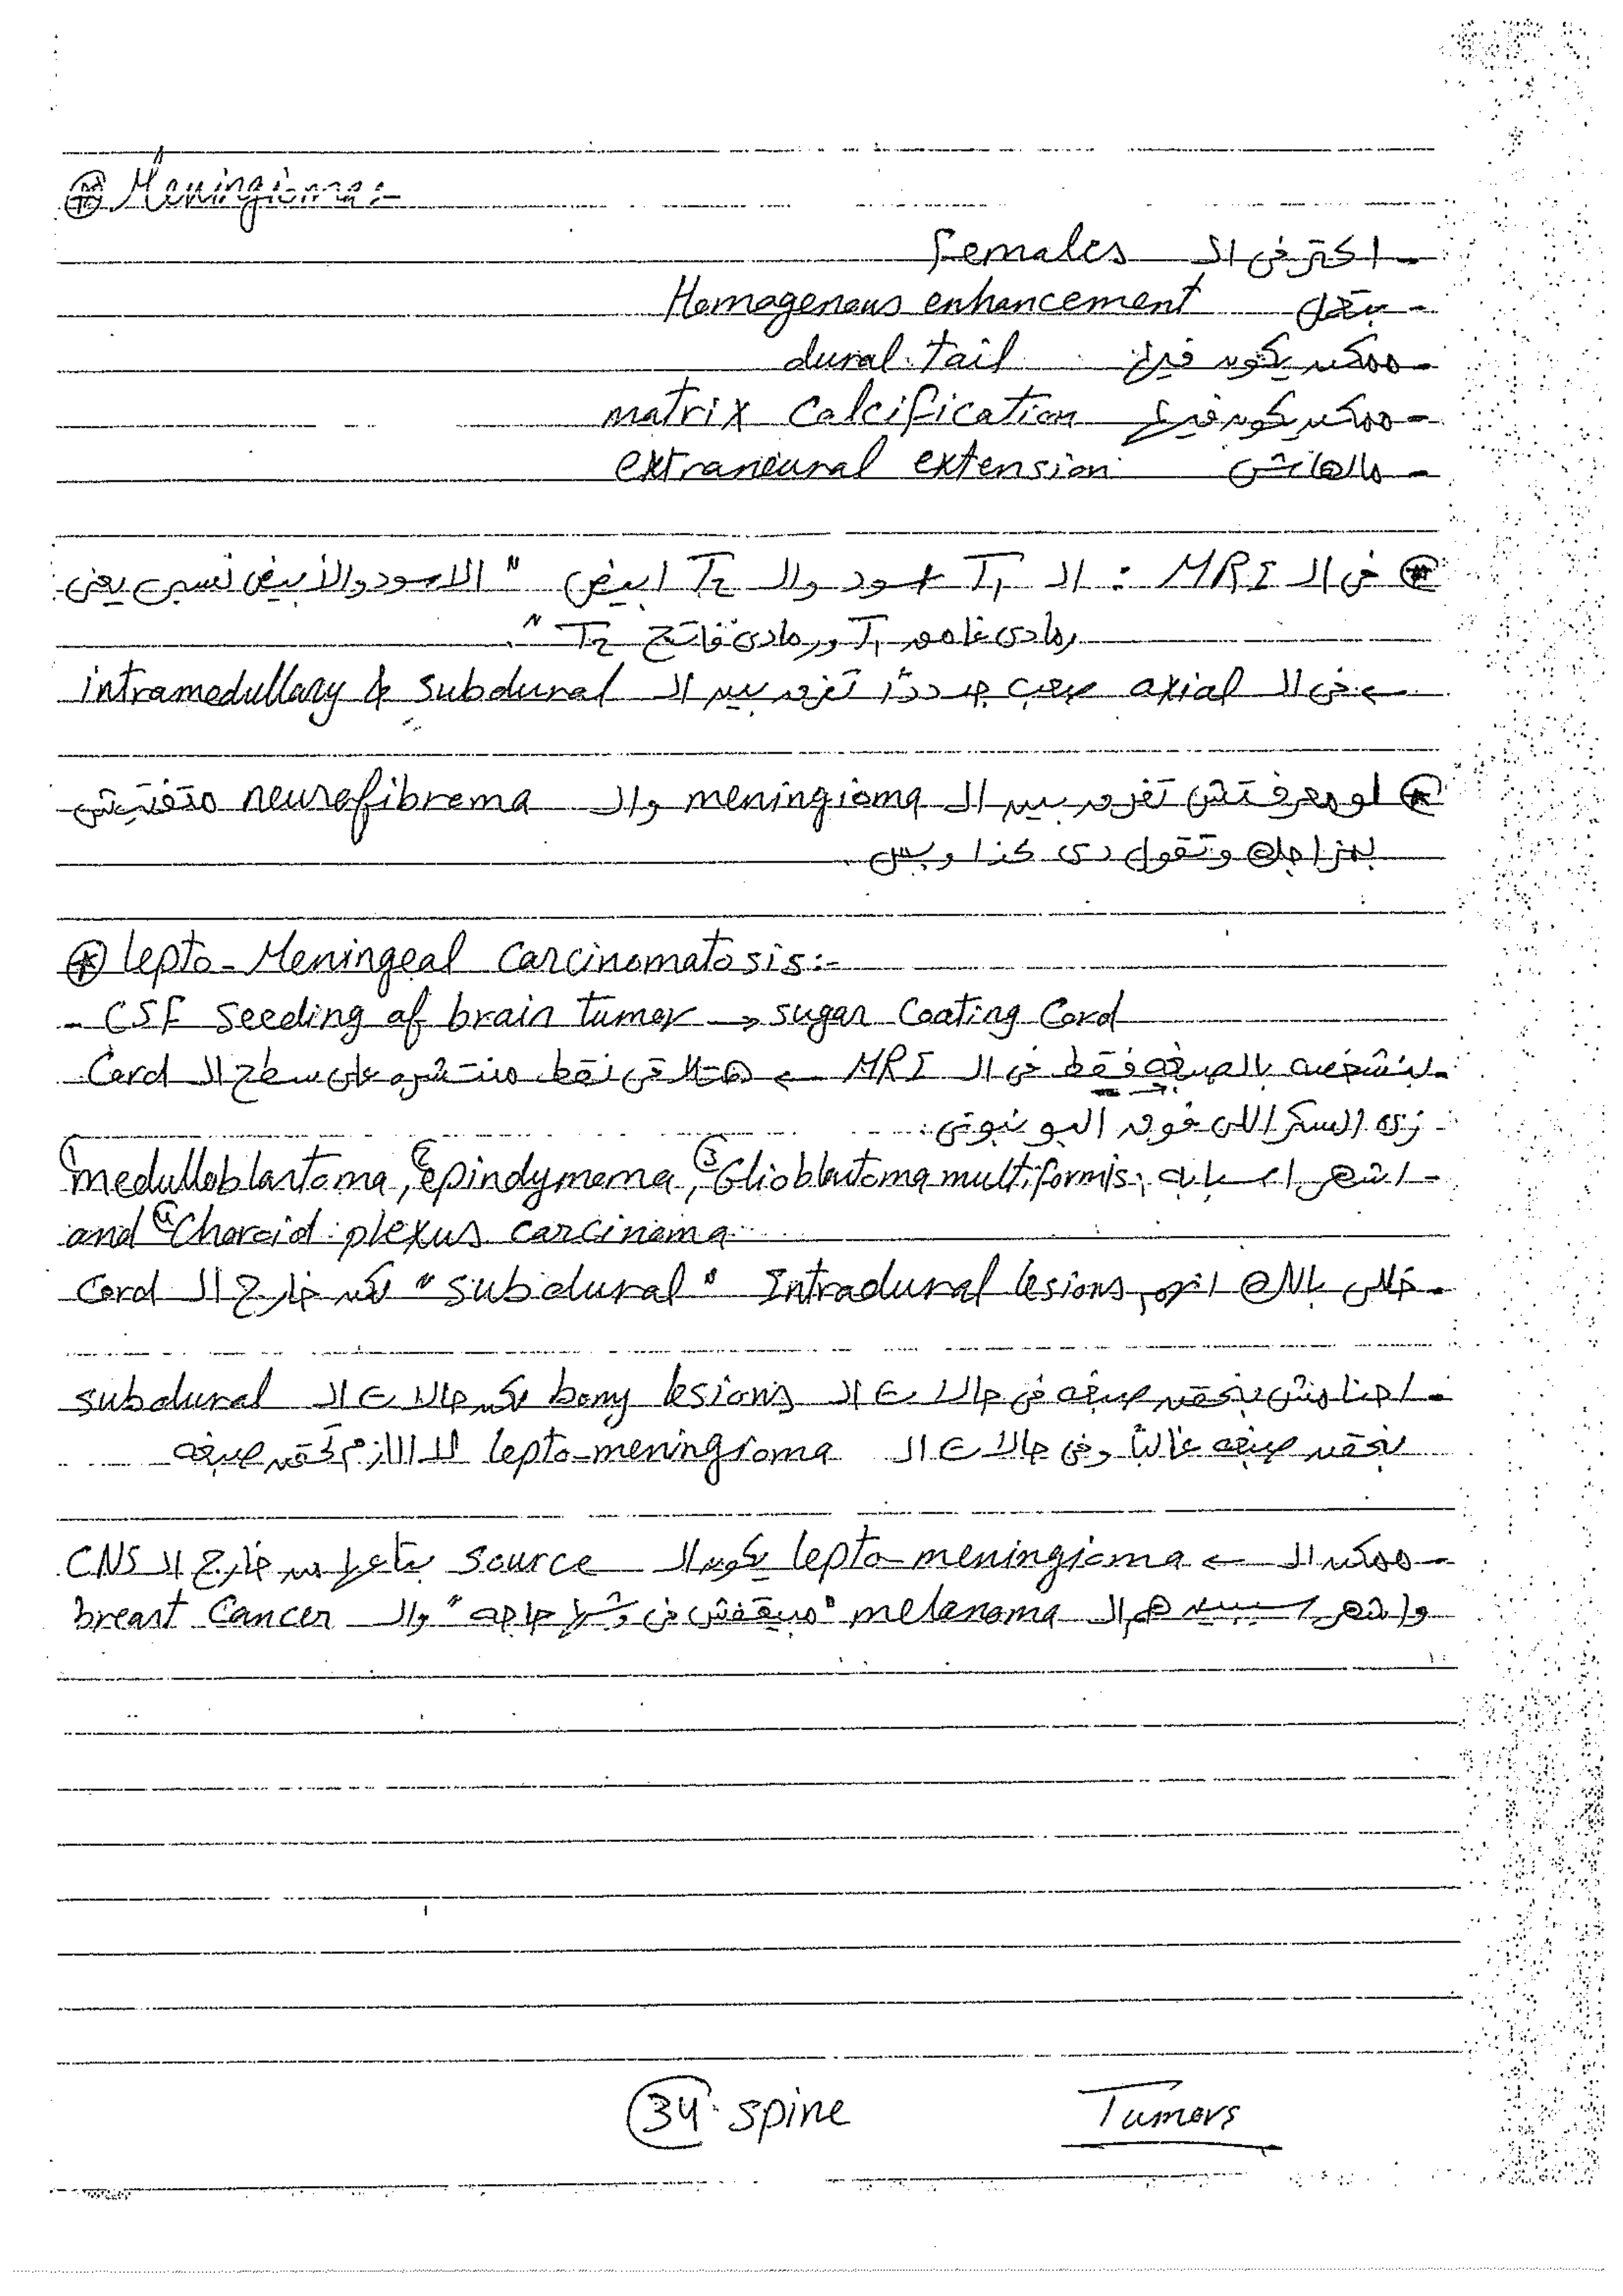 ⊛ Meningioma:-
- اكتر فى الـ Females
- بتعمل Homogenous enhancement
- ممكن يكون فيها dural tail
- ممكن يكون فيها matrix Calcification
- مالهاش extraneural extension
⊛ فى الـ MRI : الـ T1 اسود والـ T2 ابيض " الاسود والأبيض نسبى يعنى
رمادى غامق T1 ورمادى فاتح T2 ".
← فى الـ axial صعب جددًا تفرق بين الـ intramedullary & subdural
⊛ لو معرفتش تفرق بين الـ meningioma والـ neurofibroma متفتيش
بمزاجك وتقول دى كذا وبس.
⊛ lepto-Meningeal Carcinomatosis:-
- CSF Seeding of brain tumor → sugar Coating Cord
- بنشخصه بالصبغه فقط فى الـ MRI ← هتلاقى نقط منتشره على سطح الـ Cord
زى السكر اللى فوق البونبونى.
- اشهر اسبابه: ① medulloblastoma, ② epindymoma, ③ Glioblastoma multiformis,
and ④ Choroid plexus carcinoma
- خللى بالك انهم Intradural lesions "subdural" لكن خارج الـ Cord
- احنا مش بنحقن صبغه فى حالات الـ bony lesions لكن حالات الـ subdural
بنحقن صبغه غالبًا وفى حالات الـ lepto-meningioma لازم تحقن صبغه
- ممكن الـ ← lepto-meningioma يكون الـ source بتاعها من خارج الـ CNS
واشهر سببين هم الـ melanoma "مبيقفش فى وشها حاجه" والـ breast Cancer
34 spine
Tumors